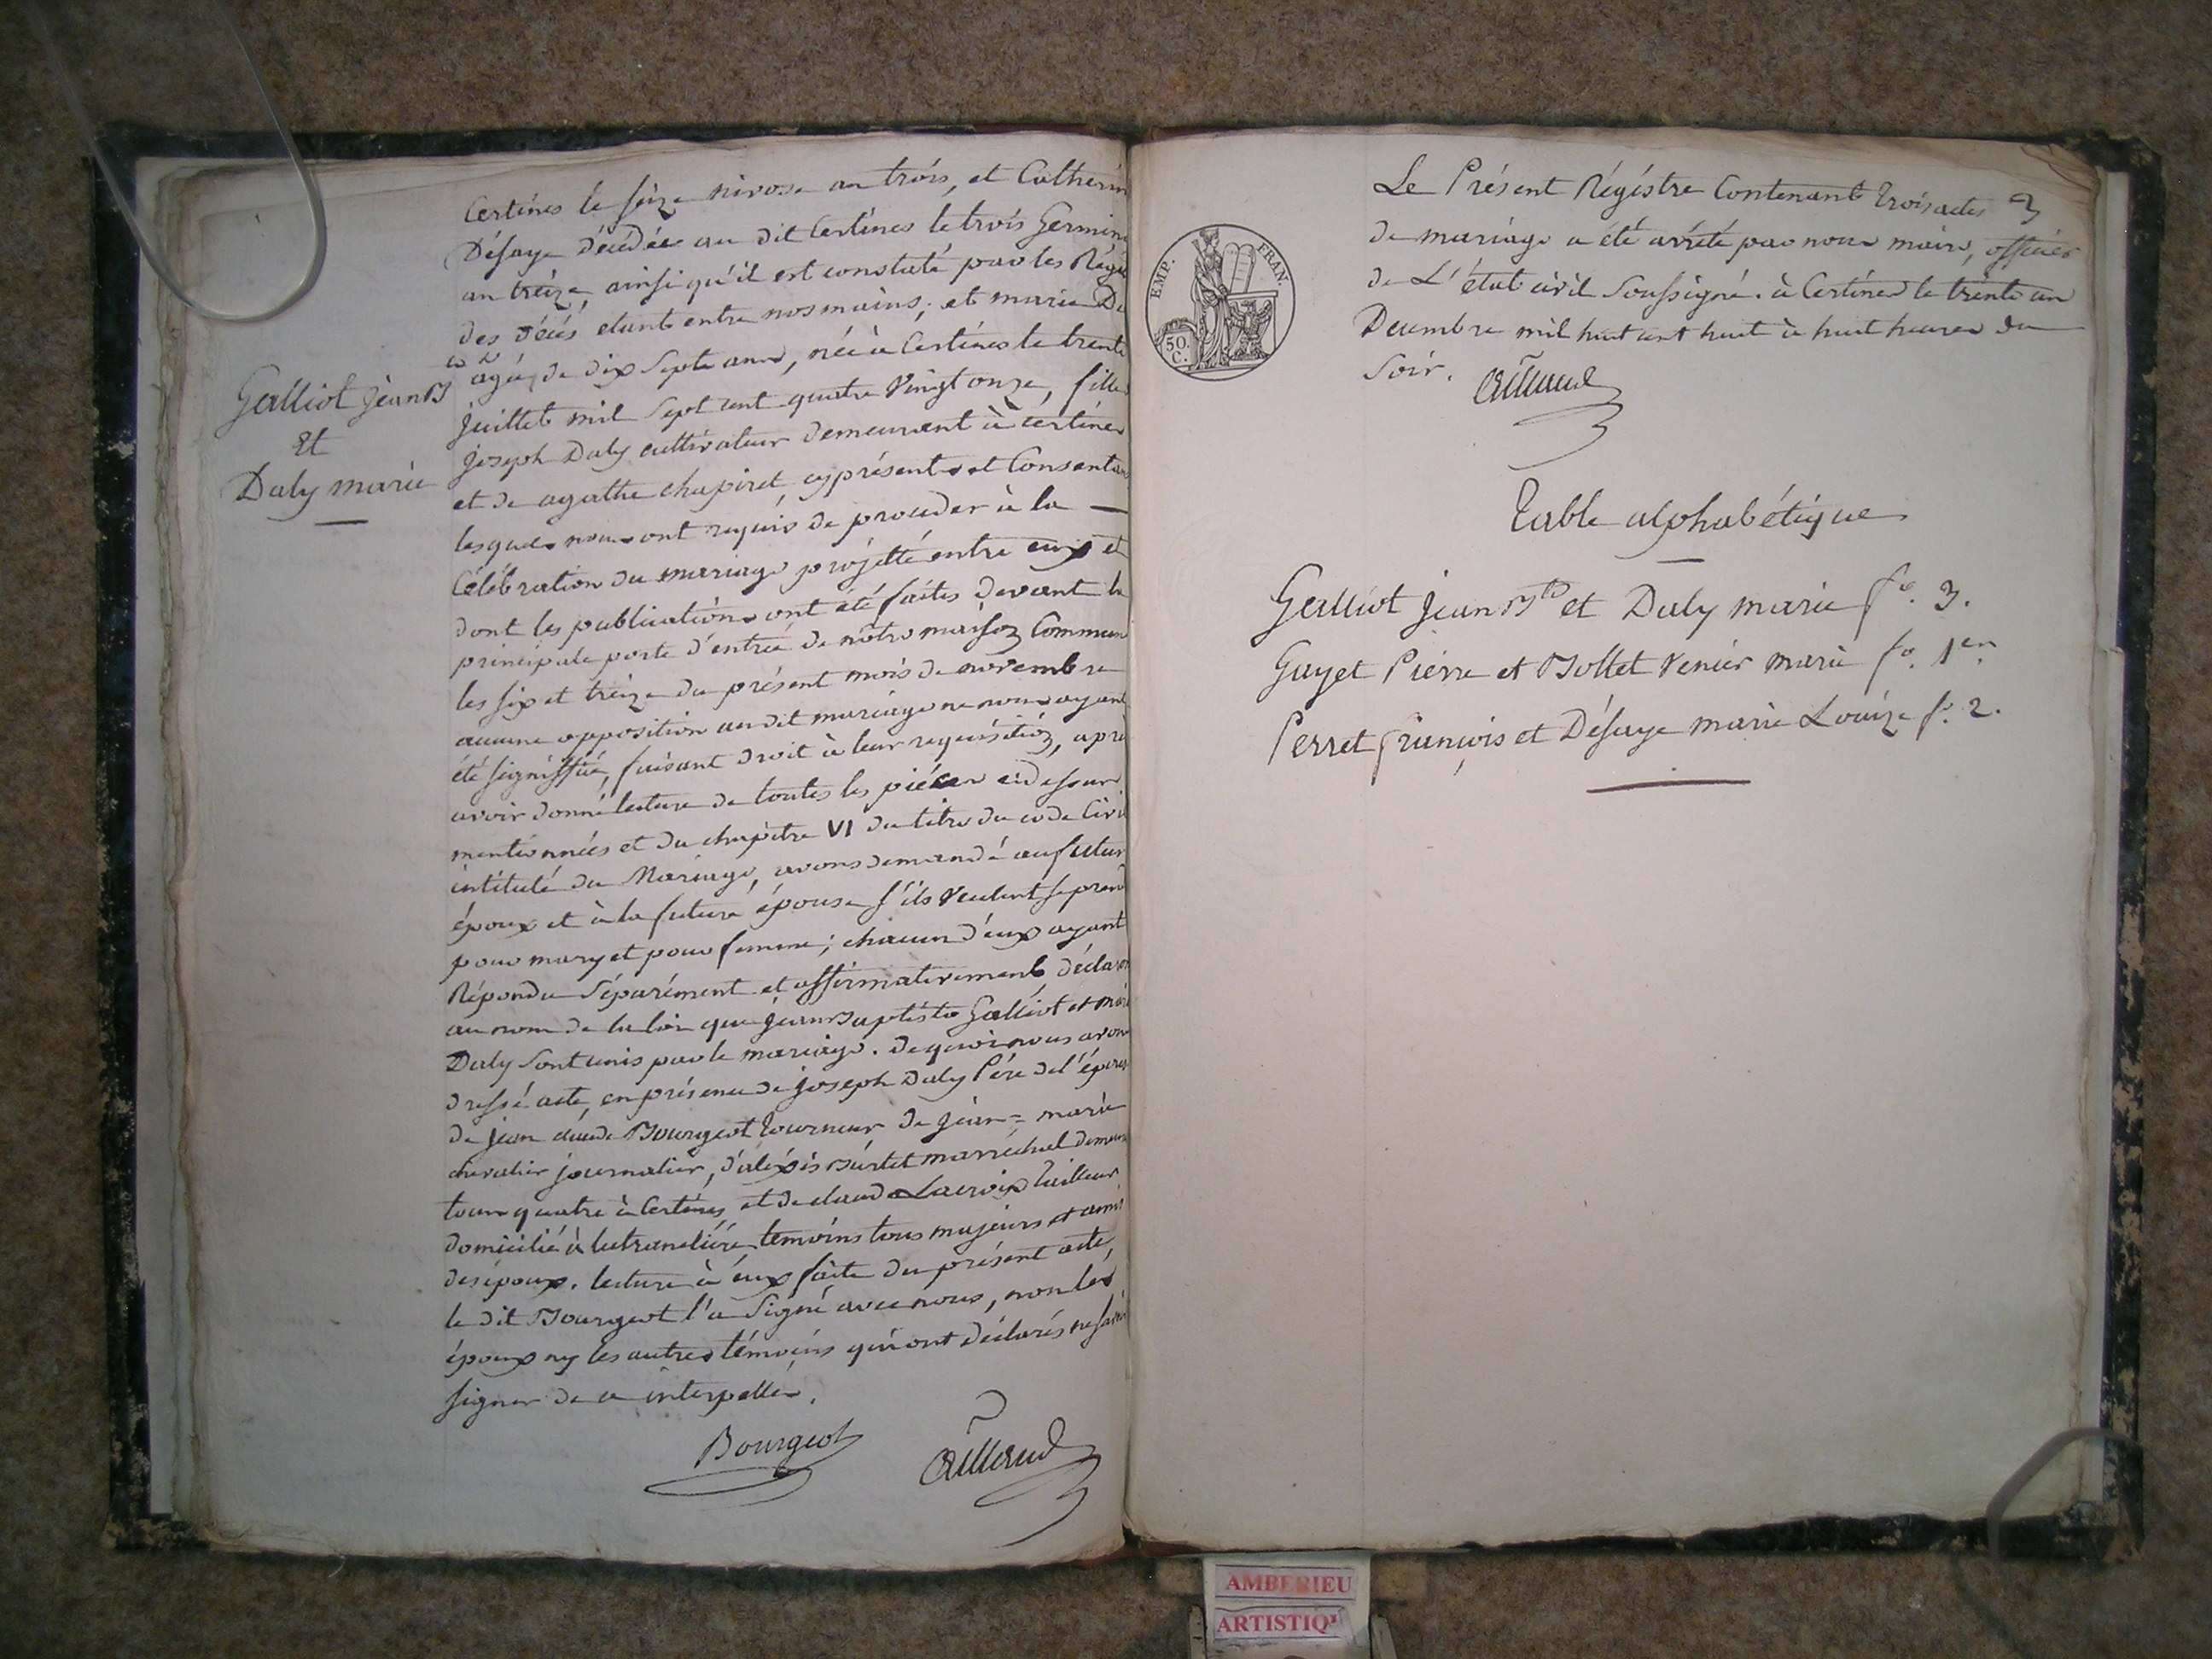 Certines le seize nivose an trois, et Catherin
Désaye décédée au dit Certines le trois Germin
an treize, ainsi qu'il est constaté par les Régi
des décés etant entre nos mains; et marie Da
agée de dix Septe ans, née à Certines le trente
juillet mil Sept cent quatre Vingt onze, fille
joseph Daly cultivateur demeurant à certines
et de agathe chapiret, cy présents et Consentan
lesquels nous ont requis de procéder à la —
Célébration du mariage projetté entre eux et
dont les publications ont été faites devant la
principale porte d'entrée de nôtre maison Commun
les six et treize du présent mois de novembre
aucune opposition au dit mariage ne nous ayant
été signiffié, faisant droit à leur requisition, aprè
avoir donné lecture de toutes les piéces cidessus
mentionnées et du chapitre VI du titre du code Civil
intitulé du Mariage, avons demandé au futur
époux et à la future épouse s'ils veulent se prend
pour mary et pour femme; chacun d'eux ayant
Répondu Séparément et affirmativement, déclar
au nom de la loi que jean Baptiste Galliot et mari
Daly Sont unis par le mariage. de quoi nous avons
dressé acte, en présence de joseph Daly Pére de l'épouse
de jean claude Bourgeot tourneur de jean = marie
chevalier journalier, d'aléxis Burtet marréchal demeur
tous quatre à Certines et de claude Lacroix tailleur
domicilié à latrancliére, temoins tous majeurs et amis
des époux. lecture à eux faite du présent acte,
le dit Bourgeot l'a Signé avec nous, non les
époux ny les autres témoins qui ont déclarés ne savoir
signer de ce interpellés.
Bourgeot
Galliot jean B
Et
Daly marie
EMP. FRAN.
50.
C.
Le Présent Régistre Contenant trois actes 3
de mariage a été arrêté par nous maire, officier
de L'état civil Soussigné. à Certines le trente un
Decembre mil huit cent huit à huit heures du
Soir.
Table alphabétique
Galliot jean Bte et Daly marie fo. 3.
Guyet Piérre et Bollet Venier marie fo. 1er
Perret françois et Désaye marie Louize fo. 2.
AMBERIEU
ARTISTIQ